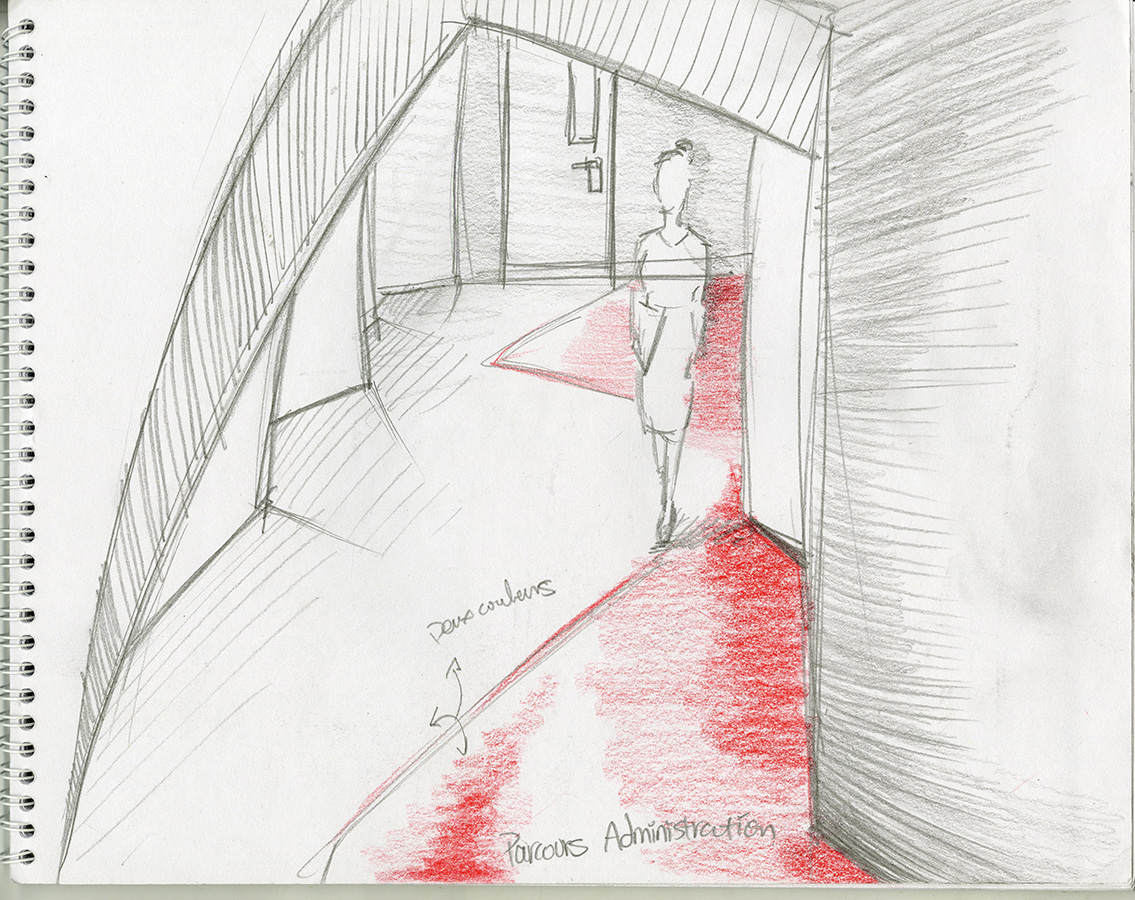 Deux couleurs
Parcours Administration